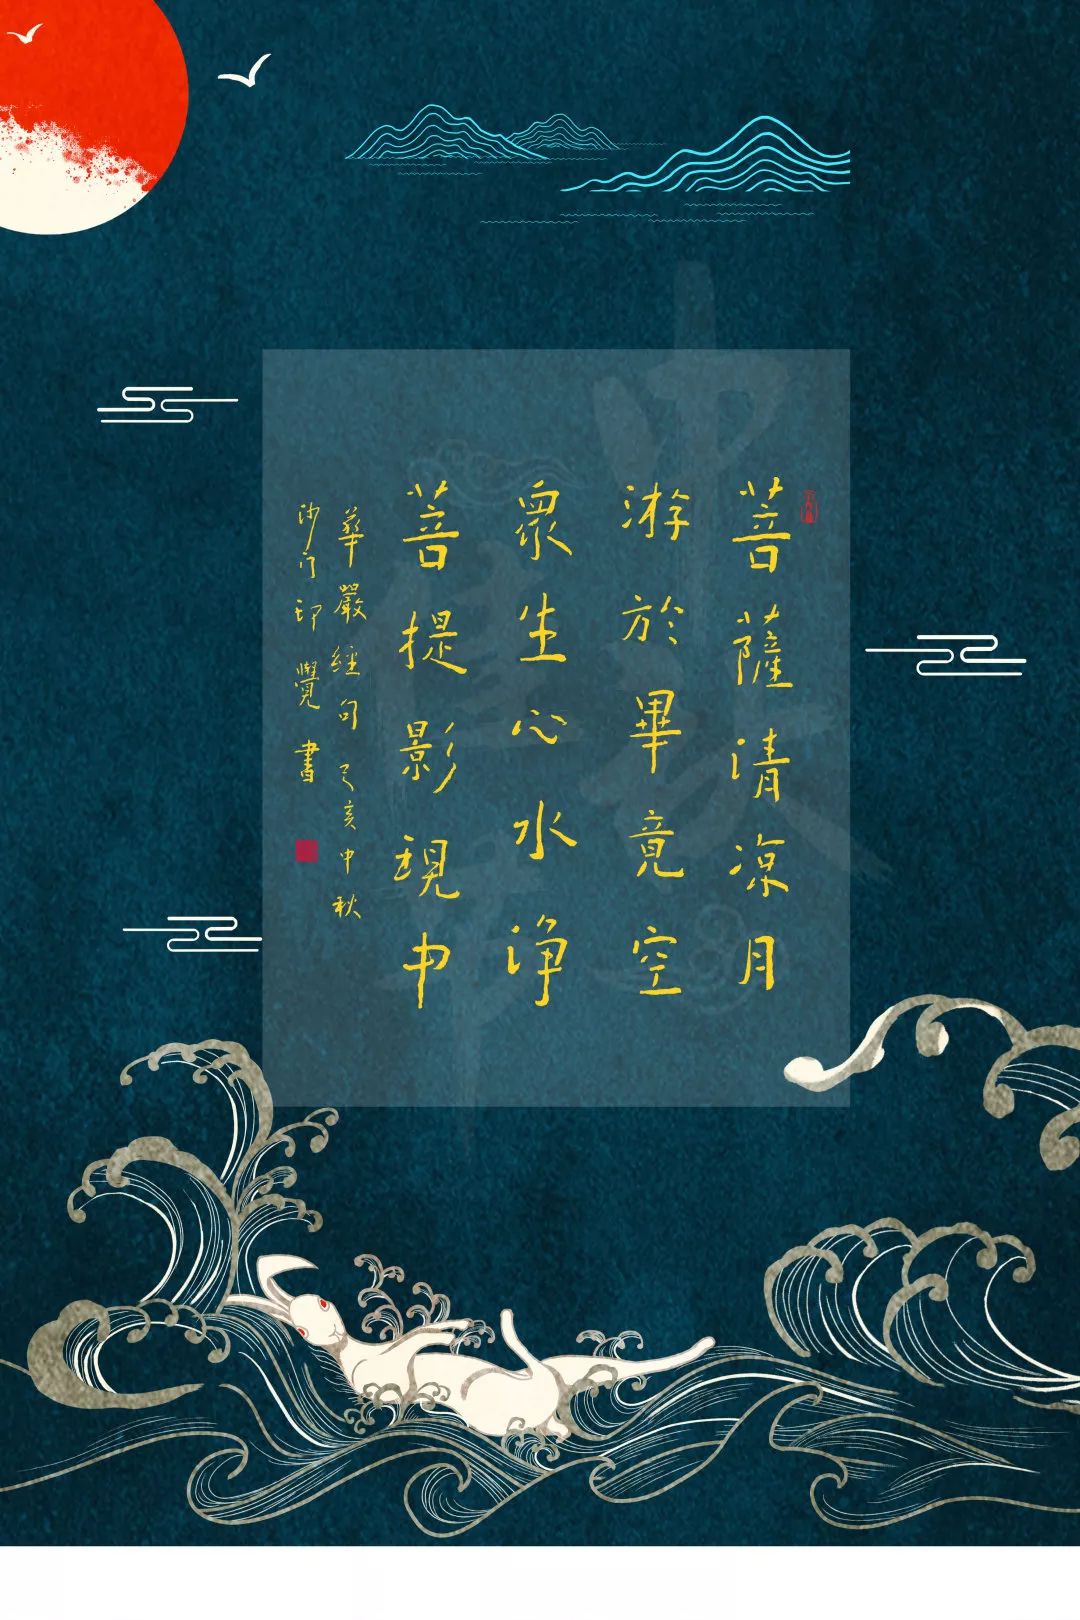 菩薩清凉月
游於畢竟空
眾生心水净
菩提影現中
華嚴經句 己亥中秋
沙门印覺書